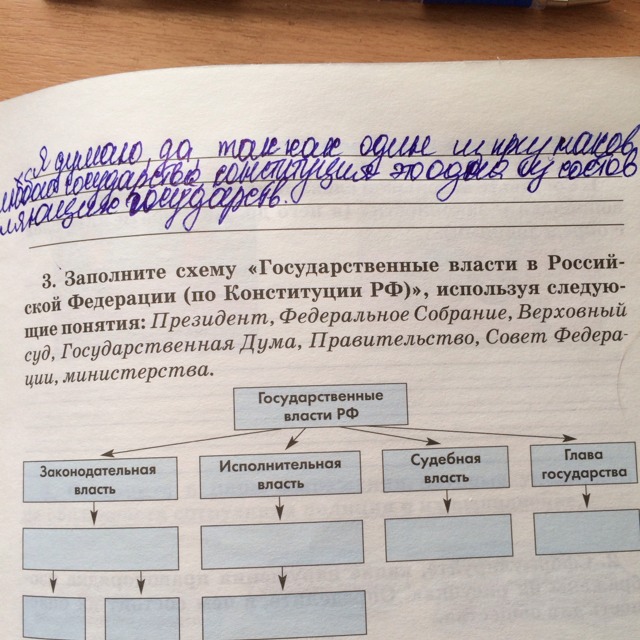 Я думаю да так как один из признаков
любого государства конституция это одна из состав
ляющих государств.
3. Заполните схему «Государственные власти в Россий-
ской Федерации (по Конституции РФ)», используя следую-
щие понятия: Президент, Федеральное Собрание, Верховный
суд, Государственная Дума, Правительство, Совет Федера-
ции, министерства.
Государственные
власти РФ
Законодательная
власть
Исполнительная
власть
Судебная
власть
Глава
государства